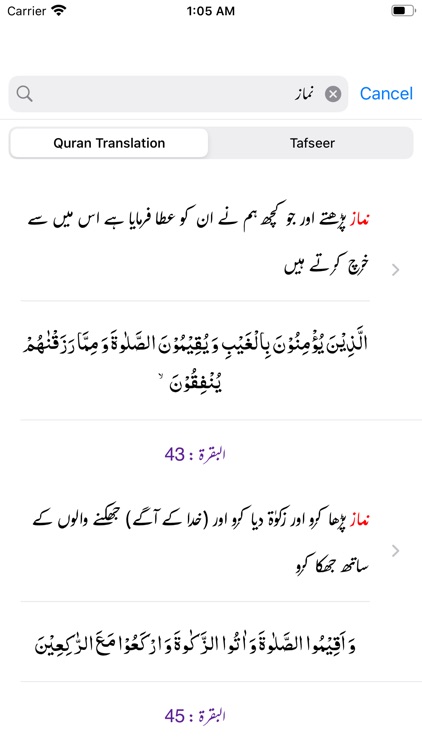 Carrier 1:05 AM
نماز Cancel
Quran Translation Tafseer
نماز پڑھتے اور جو کچھ ہم نے ان کو عطا فرمایا ہے اس میں سے
خرچ کرتے ہیں
الَّذِیْنَ یُؤْمِنُوْنَ بِالْغَیْبِ وَ یُقِیْمُوْنَ الصَّلٰوةَ وَ مِمَّا رَزَقْنٰهُمْ
یُنْفِقُوْنَ ۙ
البقرة : 43
نماز پڑھا کرو اور زکوٰة دیا کرو اور (خدا کے آگے) جھکنے والوں کے
ساتھ جھکا کرو
وَ اَقِیْمُوا الصَّلٰوةَ وَ اٰتُوا الزَّكٰوةَ وَ ارْكَعُوْا مَعَ الرّٰكِعِیْنَ
البقرة : 45